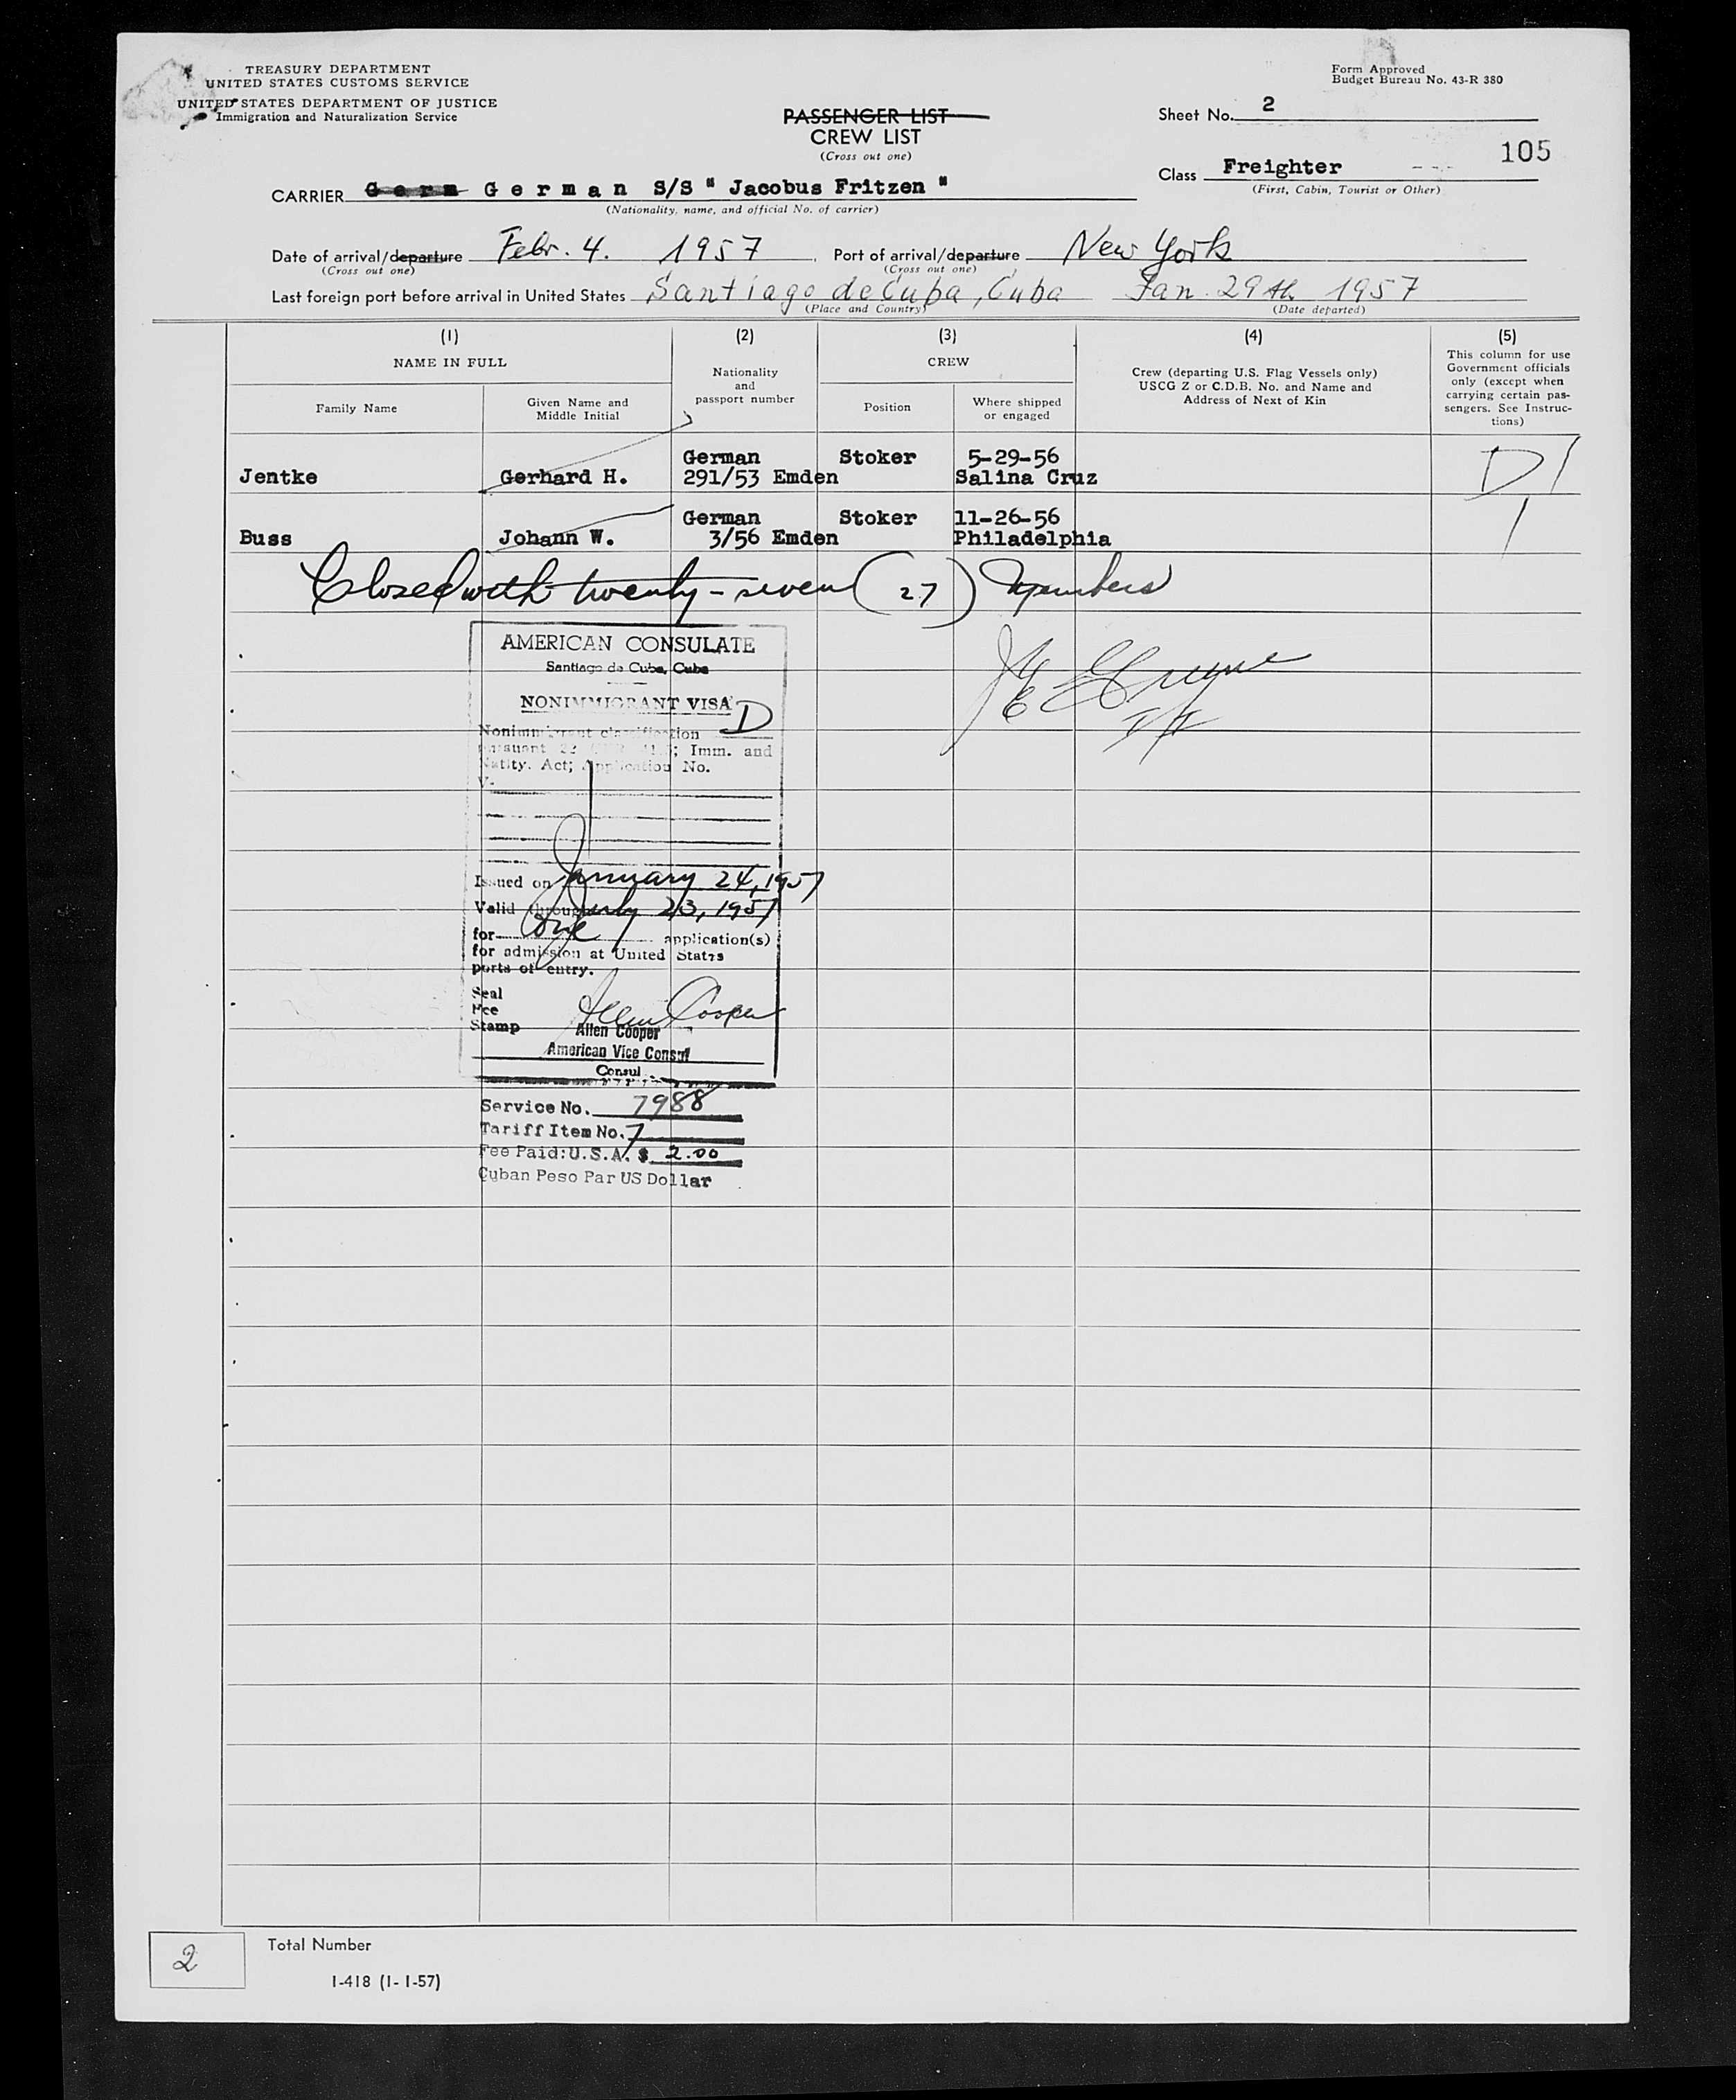 TREASURY DEPARTMENT
UNITED STATES CUSTOMS SERVICE
UNITED STATES DEPARTMENT OF JUSTICE
Immigration and Naturalization Service
Form Approved
Budget Bureau No. 43-R 380
PASSENGER LIST
CREW LIST
(Cross out one)
Sheet No. 2
105
Class Freighter
(First, Cabin, Tourist or Other)
CARRIER Germ German S/S " Jacobus Fritzen "
(Nationality, name, and official No. of carrier)
Date of arrival/departure Febr. 4. 1957, Port of arrival/departure New York
(Cross out one) (Cross out one)
Last foreign port before arrival in United States Santiago de Cuba, Cuba Jan. 29th 1957
(Place and Country) (Date departed)
(1) (2) (3) (4) (5)
NAME IN FULL
Family Name
Given Name and
Middle Initial
Nationality
and
passport number
CREW
Position
Where shipped
or engaged
Crew (departing U.S. Flag Vessels only)
USCG Z or C.D.B. No. and Name and
Address of Next of Kin
This column for use
Government officials
only (except when
carrying certain pas-
sengers. See Instruc-
tions)
German Stoker 5-29-56
Jentke Gerhard H. 291/53 Emden Salina Cruz
D1
German Stoker 11-26-56
Buss Johann W. 3/56 Emden Philadelphia
Closed with twenty-seven (27) members
AMERICAN CONSULATE
Santiago de Cuba, Cuba
NONIMMIGRANT VISA
D
Nonimmigrant classification
pursuant 22 Imm. and
Natlty. Act; Application No.
V-
Issued on January 24, 1957
Valid through July 23, 1957
for one application(s)
for admission at United States
ports of entry.
Seal
Fee
Stamp
Allen Cooper
Allen Cooper
American Vice Consul
Consul
Service No. 7988
Tariff Item No. 7
Fee Paid: U.S.A. $ 2.00
Cuban Peso Par US Dollar
2
Total Number
I-418 (1-1-57)